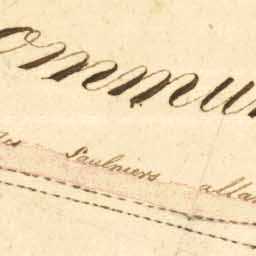 ommu
Saulniers allan